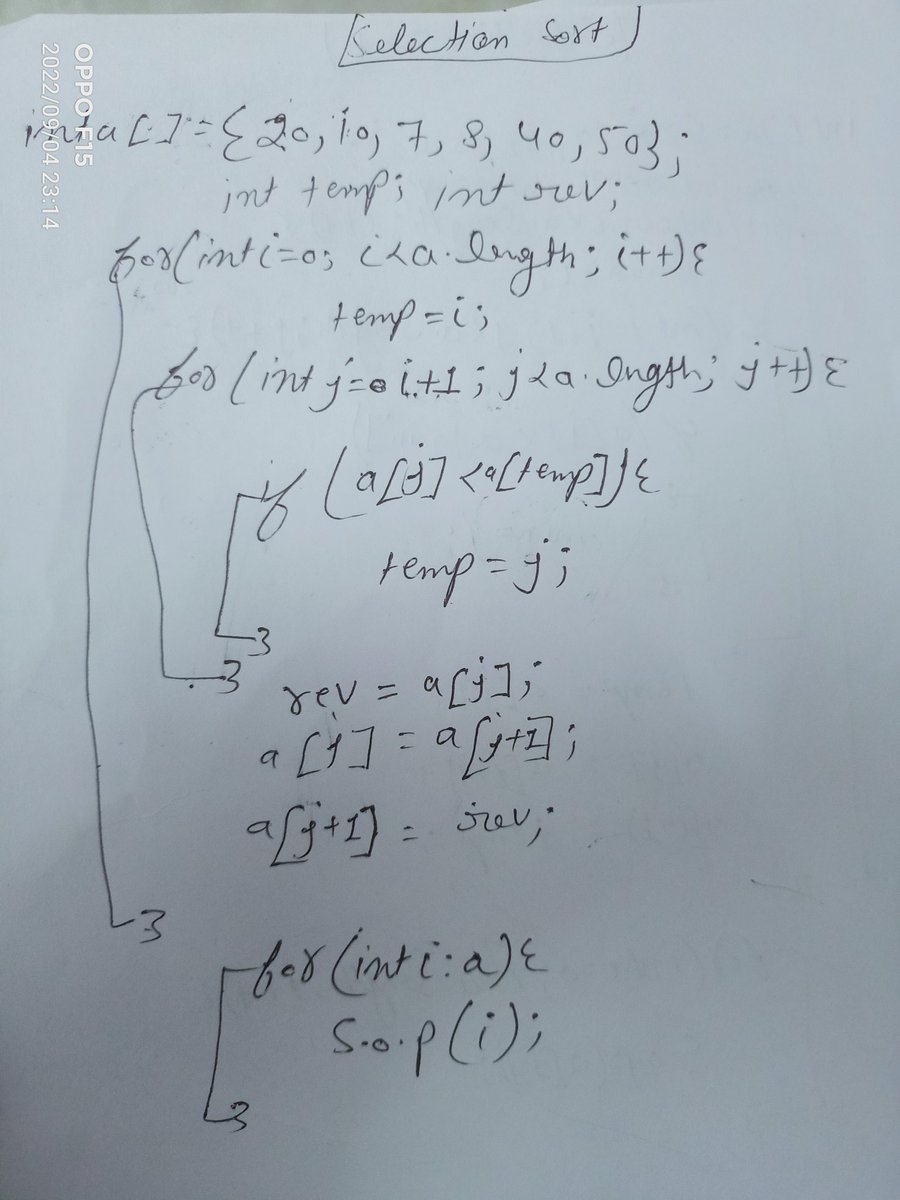 Selection Sort
int a[] = {20, 10, 7, 8, 40, 50};
int temp; int rev;
for(int i=0; i<a.length; i++){
temp = i;
for (int j= i+1; j<a.lngth; j++){
if (a[j] <a[temp]){
temp = j;
}
}
rev = a[j];
a[j] = a[j+1];
a[j+1] = rev;
}
for(int i:a){
S.o.p(i);
}
OPPO F15
2022/09/04 23:14